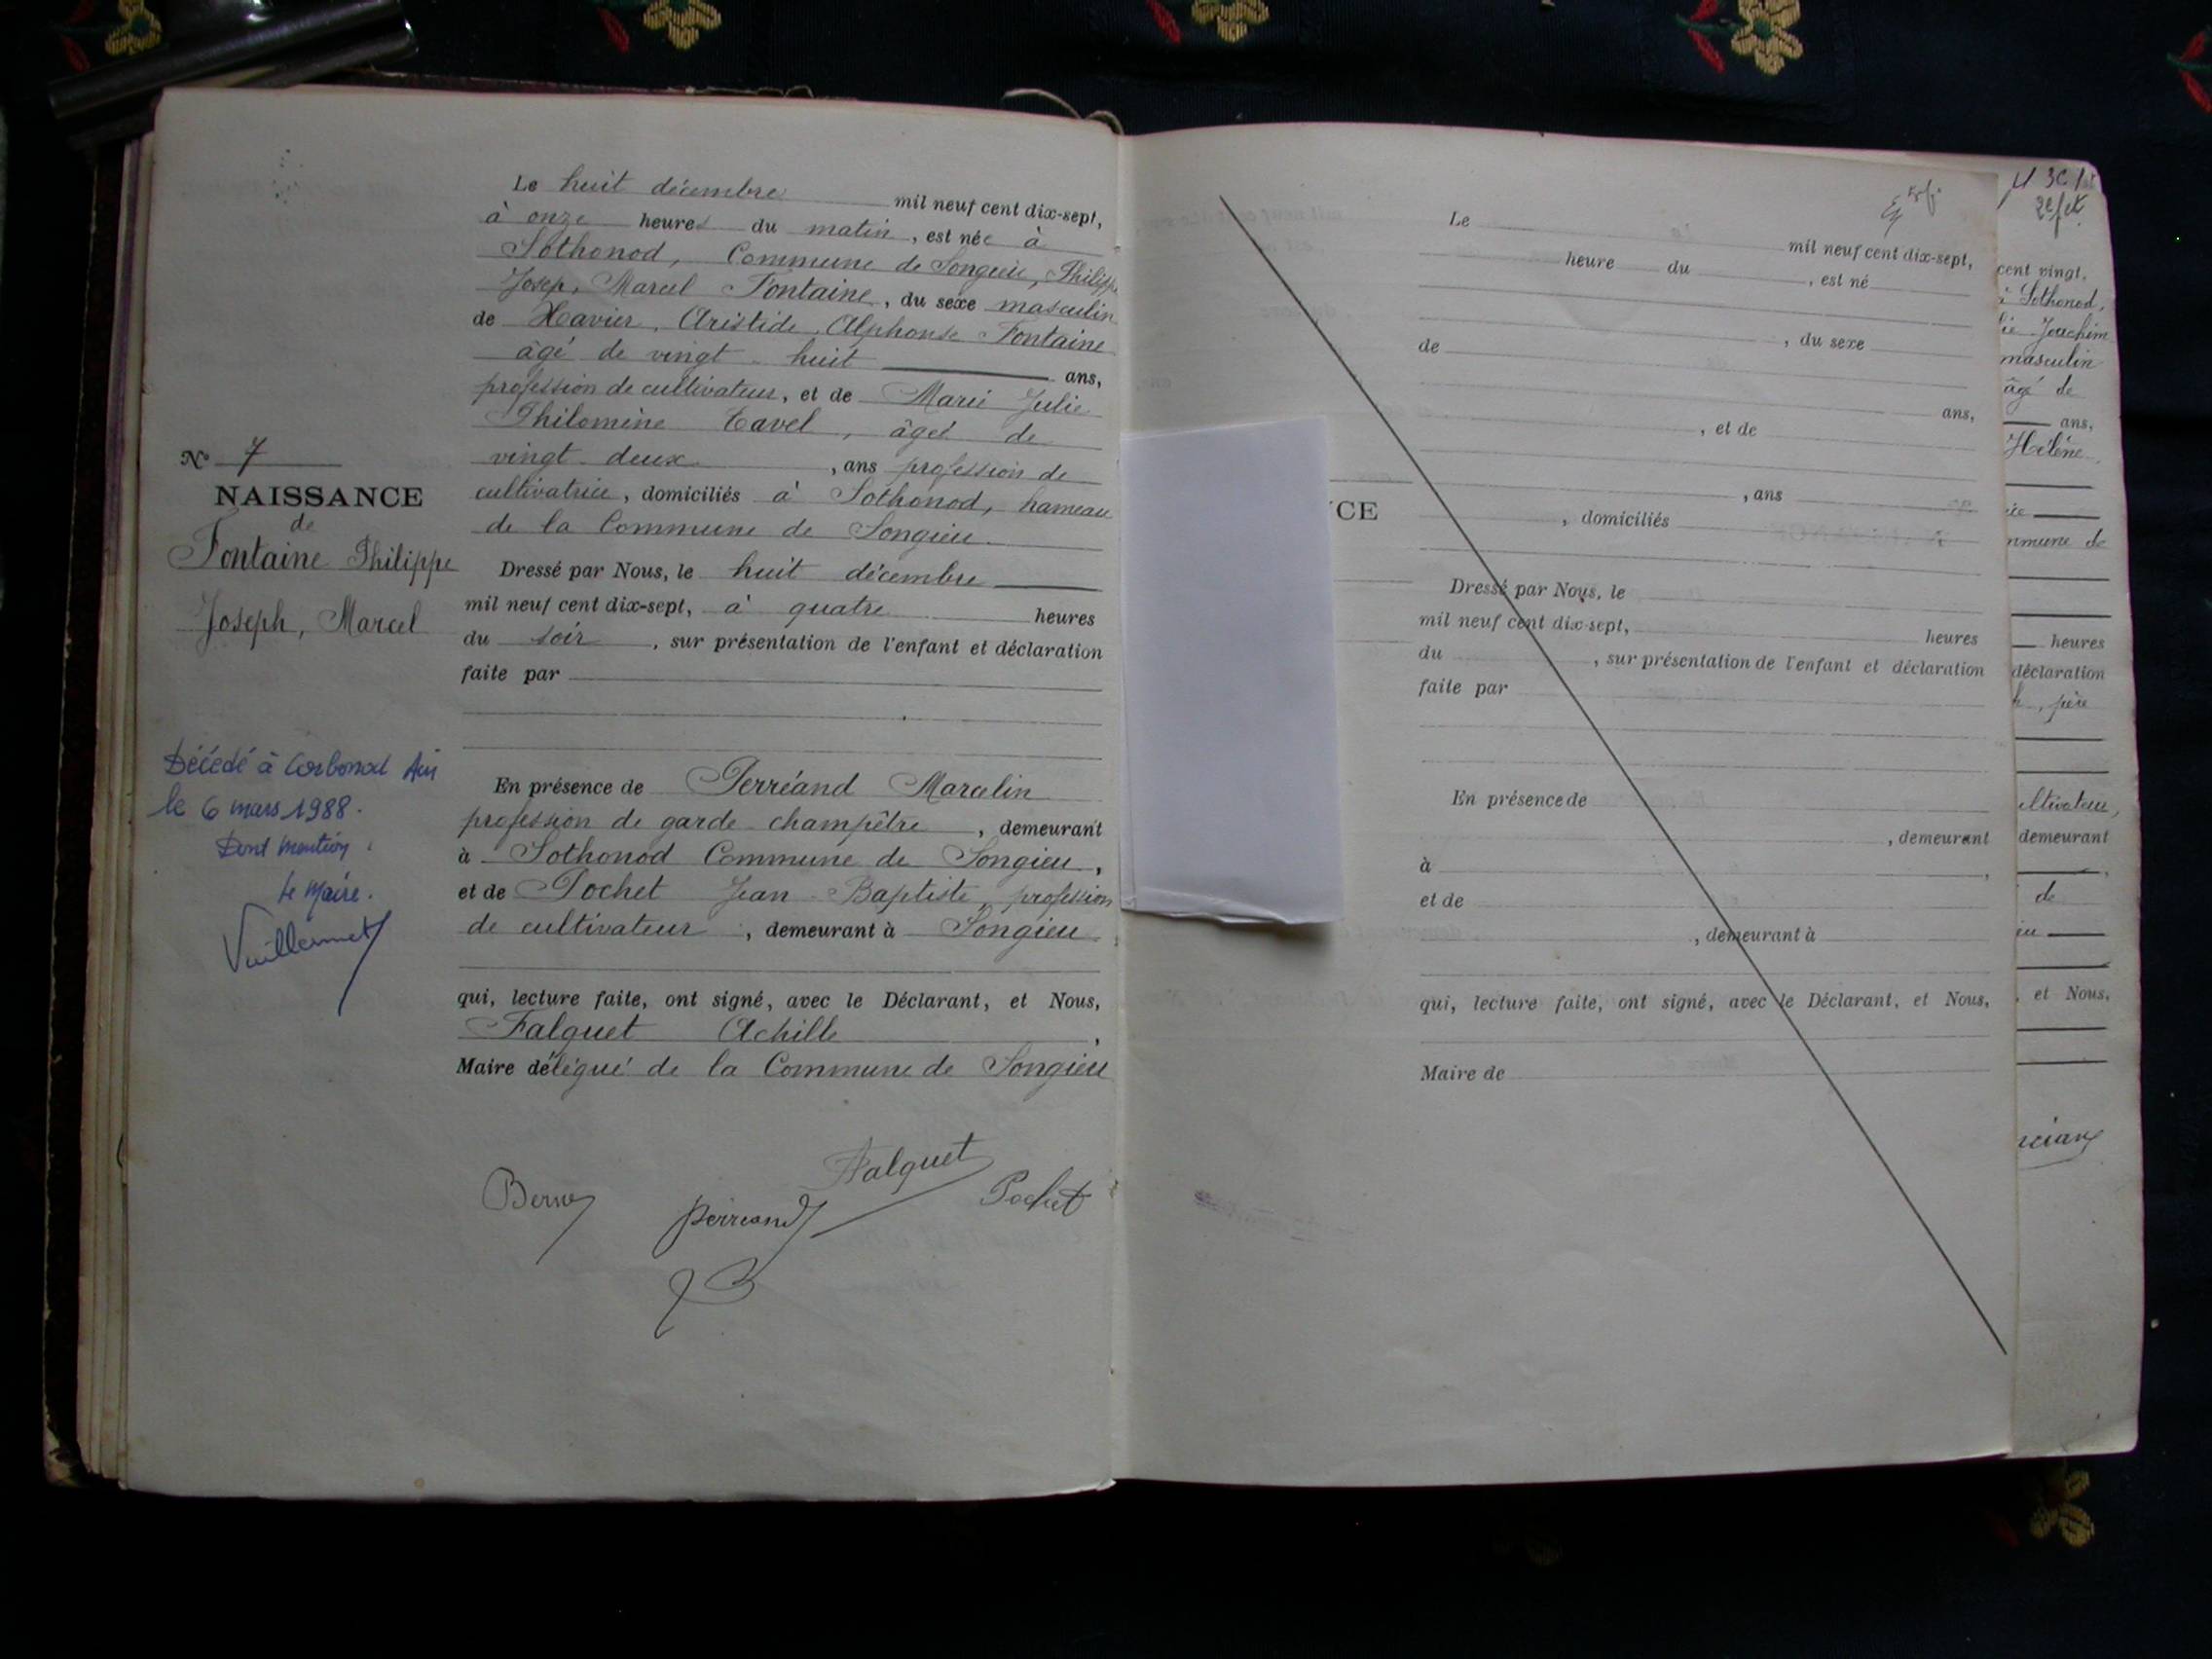 N° 7
NAISSANCE
de
Fontaine Philippe
Joseph, Marcel
Décédé à Corbonod Ain
le 6 mars 1988.
Dont mention.
Le Maire.
Le huit décembre mil neuf cent dix-sept,
à onze heures du matin, est née à
Sothonod, Commune de Songieu, Philippe
Josep, Marcel Fontaine, du sexe masculin
de Xavier, Aristide, Alphonse Fontaine
âgé de vingt-huit ans,
profession de cultivateur, et de Marie Julie
Philomène Tavel, âgée de
vingt deux, ans profession de
cultivatrice, domiciliés à Sothonod, hameau
de la Commune de Songieu.
Dressé par Nous, le huit décembre
mil neuf cent dix-sept, à quatre heures
du soir, sur présentation de l'enfant et déclaration
faite par
En présence de Perréand Marcelin
profession de garde-champêtre, demeurant
à Sothonod Commune de Songieu,
et de Pochet Jean-Baptiste, profession
de cultivateur, demeurant à Songieu
qui, lecture faite, ont signé, avec le Déclarant, et Nous,
Falquet Achille,
Maire délégué de la Commune de Songieu
Falquet
Perreand
Pochet
CE
Le mil neuf cent dix-sept,
heure du , est né
, du sexe
de
ans,
, et de
, ans
, domiciliés
Dressé par Nous, le
mil neuf cent dix-sept, heures
du , sur présentation de l'enfant et déclaration
faite par
En présence de
, demeurant
à ,
et de
, demeurant à
qui, lecture faite, ont signé, avec le Déclarant, et Nous,
Maire de
cent vingt.
à Sothonod,
Joachim
masculin
âgé de
ans,
Hélène,
mmune de
heures
déclaration
, père
ultivateur,
demeurant
,
de
, et Nous,